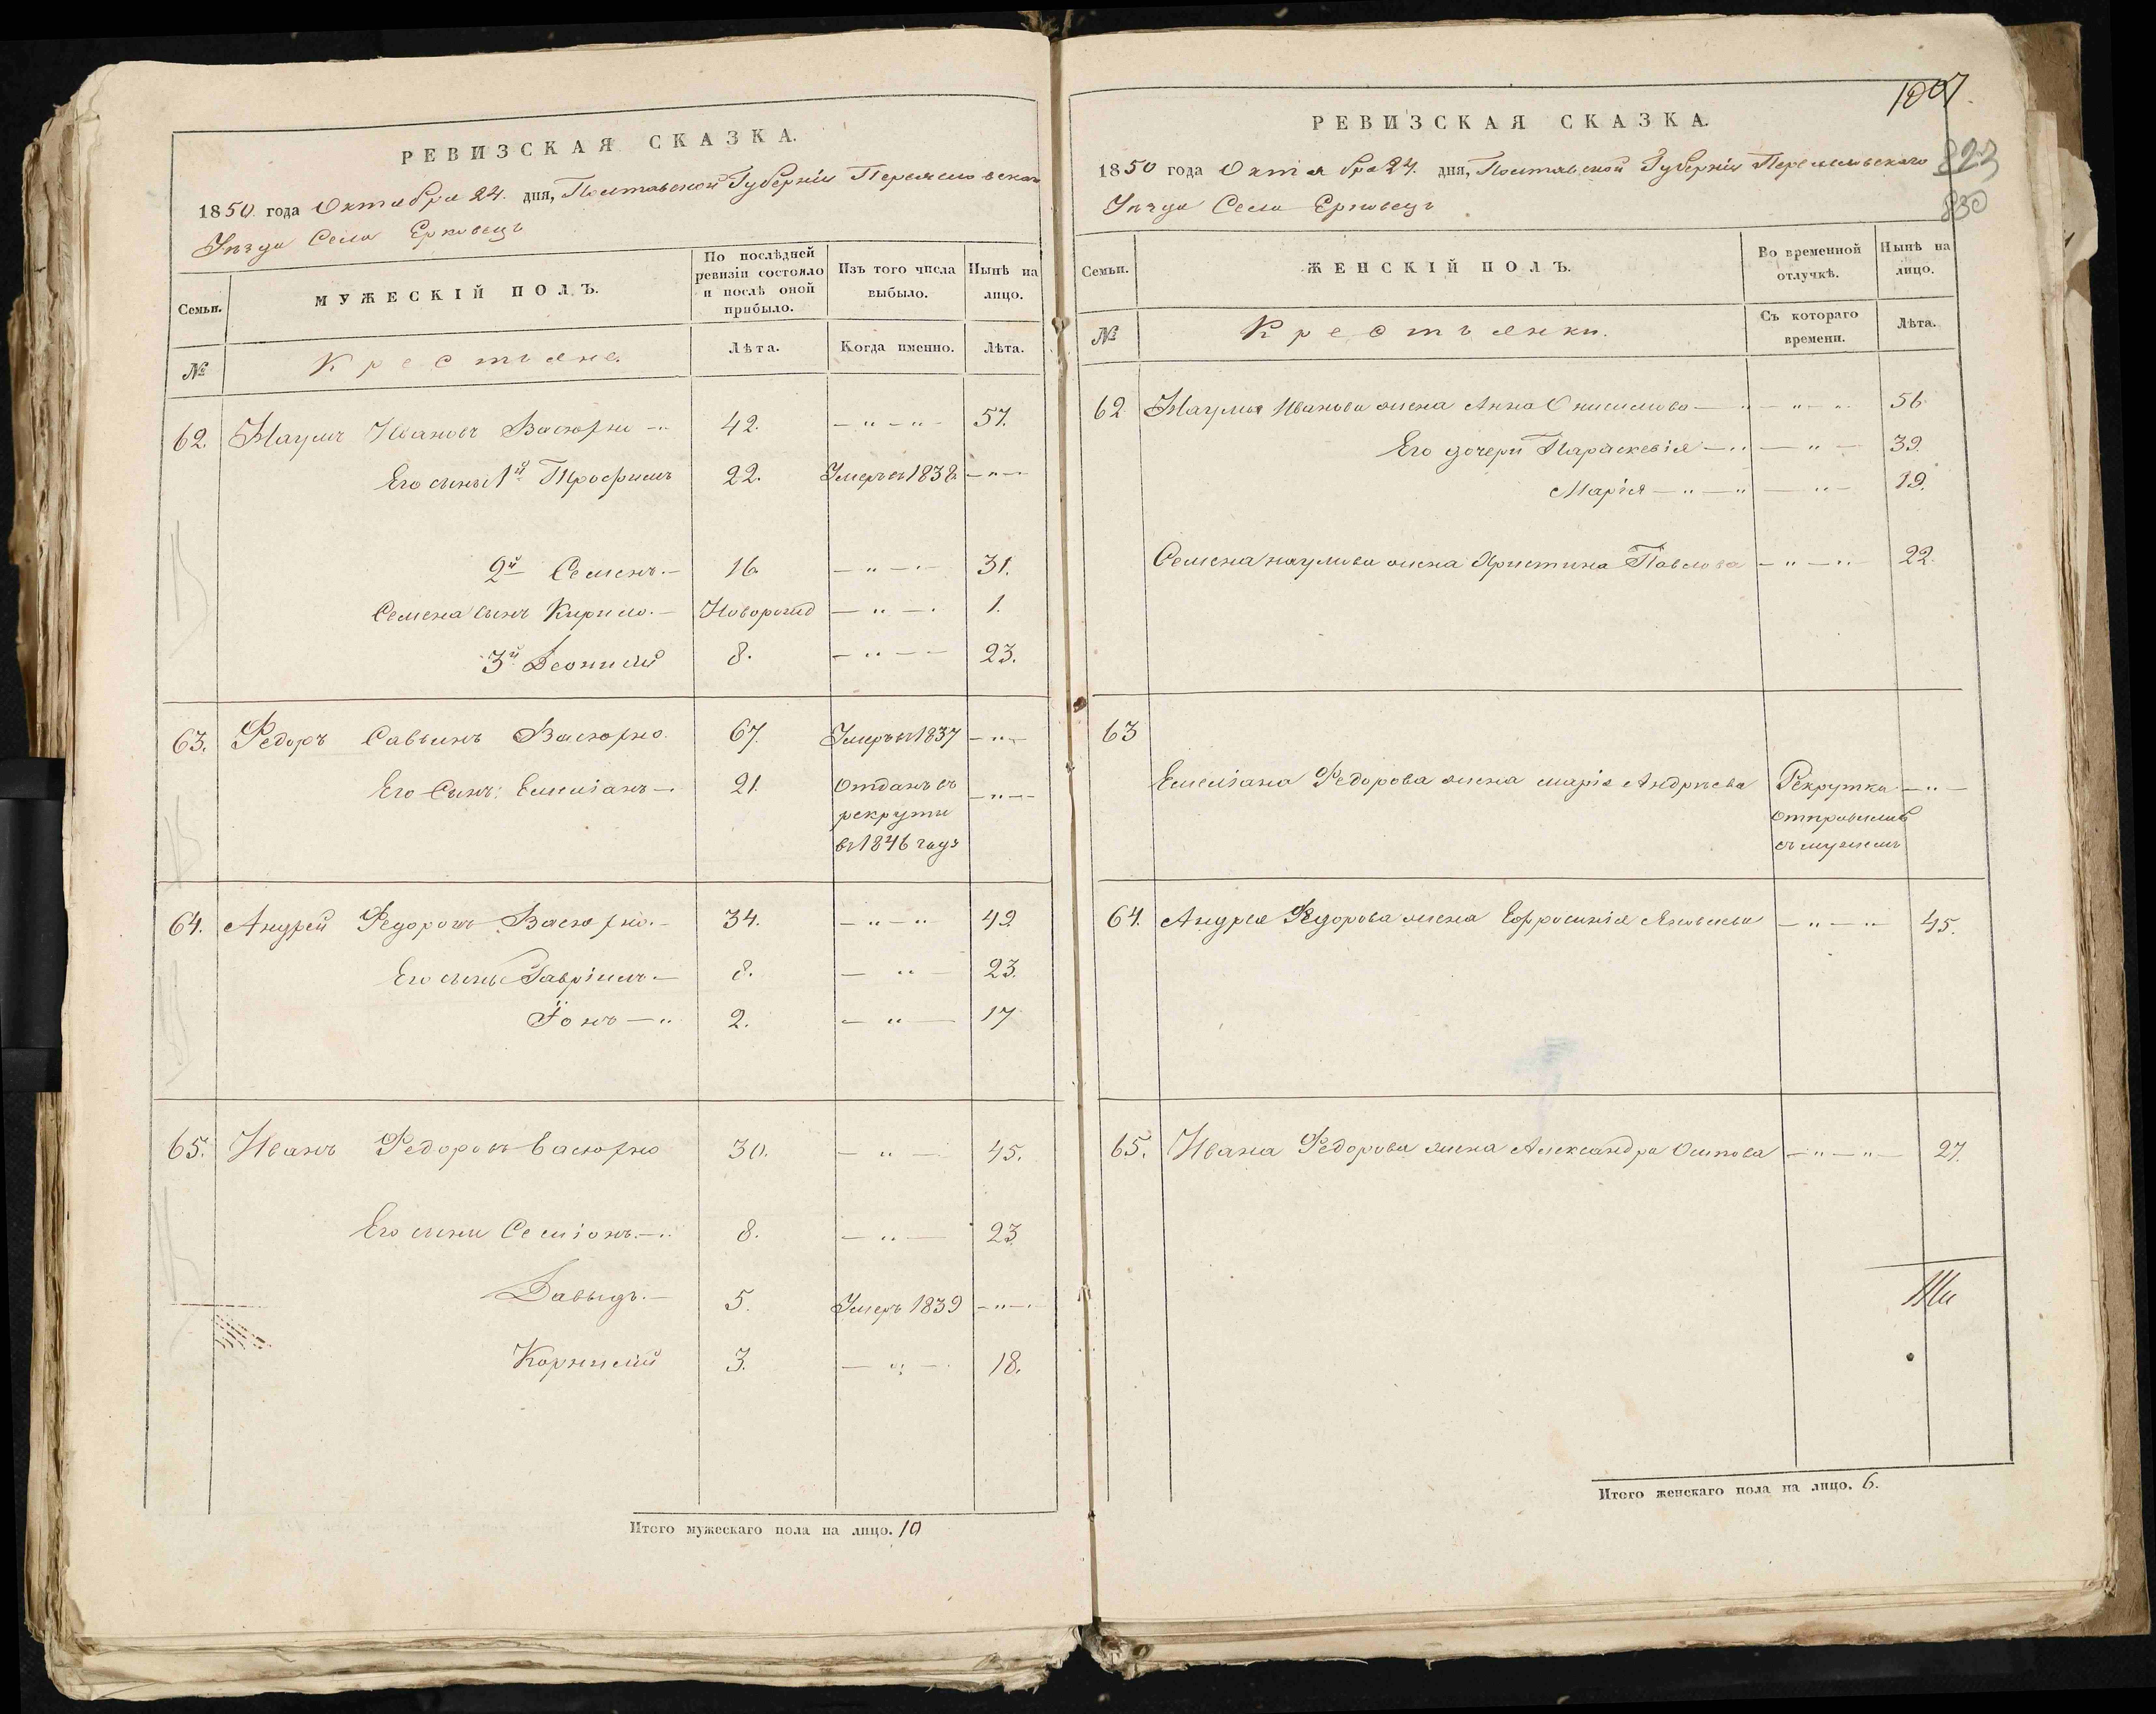 РЕВИЗСКАЯ СКАЗКА.
1850 года Октября 24. дня, Полтавской Губерніи Переяславскаго
Уѣзда Села Ерковецъ
Семьи.
МУЖЕСКІЙ ПОЛЪ.
По послѣдней ревизіи состояло и послѣ оной прибыло.
Изъ того числа выбыло.
Нынѣ на лицо.
№
Крестьяне.
Лѣта.
Когда именно.
Лѣта.
62. Наумъ Ивановъ Васюрно 42. 57.
Его сыны 1й Трофимъ 22. Умеръ въ 1838
2й Семенъ 16. 31.
Семена сынъ Кирило. Новорожд 1.
3й Леонтій 8. 23.
63. Федоръ Саввинъ Васюрно. 67. Умеръ въ 1837
Его Сынъ: Емиліанъ 21. Отданъ въ
рекруты
въ 1846 году
64. Андрей Федоровъ Васюрно. 34. 49
Его сыны Гавріилъ 8. 23.
Іонъ 2. 17
65. Иванъ Федоровъ Васюрно 30. 45.
Его сыни Семіонъ 8. 23
Давыдъ. 5. Умеръ 1839
Корнилій 3. 18.
Итого мужескаго пола на лицо. 10
1007.
823
830
РЕВИЗСКАЯ СКАЗКА.
1850 года Октября 24. дня, Полтавской Губерніи Переяславскаго
Уѣзда Села Ерковецъ
Семьи.
ЖЕНСКІЙ ПОЛЪ.
Во временной отлучкѣ.
Нынѣ на лицо.
№
Крестьянки.
Съ котораго времени.
Лѣта.
62 Наума Иванова жена Анна Онисимова 56.
Его дочери Параскевія 39.
Марія 19.
Семена наумова жена Христина Павлова 22.
63
Емиліана Федорова жена марія Андрѣева Рекрутка
отправилась
съ мужемъ
64. Андрея Федорова жена Ефросинія Яковлева 45.
65. Ивана Федорова жена Александра Осипова 27.
Итого женскаго пола на лицо. 6.